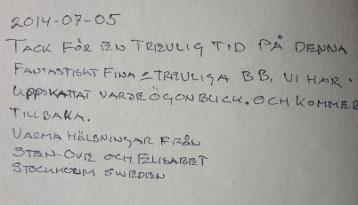 2014-07-05
TACK FÖR EN TREVLIG TID PÅ DENNA
FANTASTISKT FINA & TREVLIGA BB. VI HAR
UPPSKATTAT VARJE ÖGONBLICK. OCH KOMMER
TILLBAKA.
VARMA HÄLSNINGAR FRÅN
STEN-OVE OCH ELISABET
STOCKHOLM SWEDEN